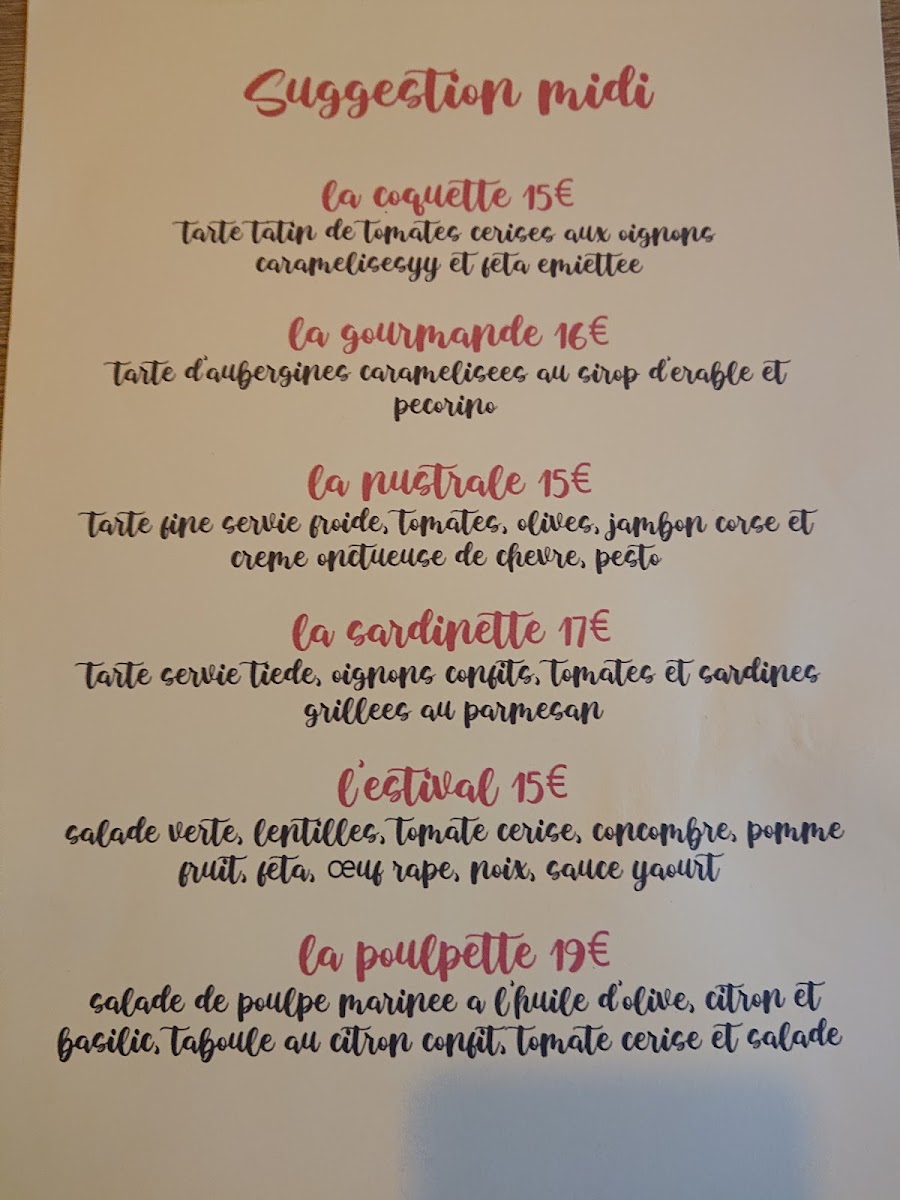 Suggestion midi
la coquette 15€
tarte tatin de tomates cerises aux oignons
caramelisesyy et feta emiettee
la gourmande 16€
tarte d'aubergines caramelisees au sirop d'erable et
pecorino
la nustrale 15€
tarte fine servie froide, tomates, olives, jambon corse et
creme onctueuse de chevre, pesto
la sardinette 17€
tarte servie tiede, oignons confits, tomates et sardines
grillees au parmesan
l'estival 15€
salade verte, lentilles, tomate cerise, concombre, pomme
fruit, feta, œuf rape, noix, sauce yaourt
la poulpette 19€
salade de poulpe marinee a l'huile d'olive, citron et
basilic, taboule au citron confit, tomate cerise et salade